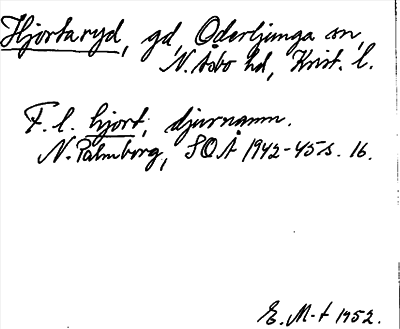 Hjortaryd, gd, Oderljunga sn,
N. Åsbo hd, Krist. l.
F. l. hjort, djurnamn.
N. Palmborg, SOÅ 1942-45 s. 16.
E. M-t 1952.